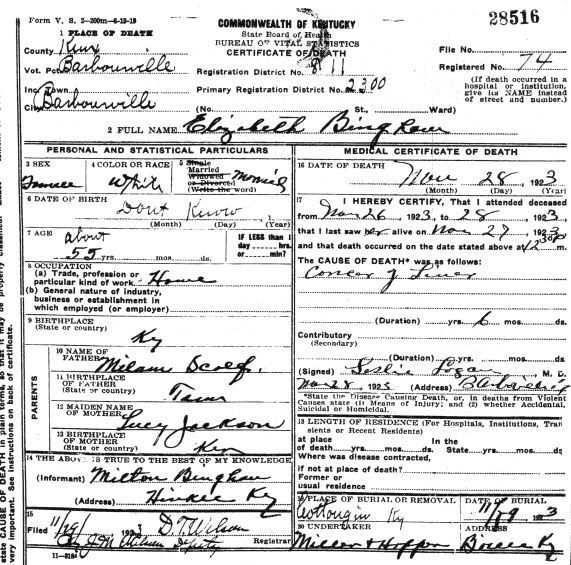 Form V. S. 2-200m-6-19-19
28516
COMMONWEALTH OF KENTUCKY
State Board of Health
BUREAU OF VITAL STATISTICS
CERTIFICATE OF DEATH
1 PLACE OF DEATH
County Knox
Vot. Pct. Barbourville
Inc. Town
City Barbourville
File No.
Registered No. 74
Registration District No.
Primary Registration District No. 2300
(If death occurred in a hospital or institution, give its NAME instead of street and number.)
(No. St., Ward)
2 FULL NAME Elizabeth Bingham
PERSONAL AND STATISTICAL PARTICULARS
3 SEX
4 COLOR OR RACE White
5 Single
Married
Widowed
or Divorced
(Write the word)
6 DATE OF BIRTH
Dont Know
(Month) (Day) (Year)
7 AGE about
55 yrs. mos. ds.
IF LESS than 1 day hrs. or min.?
8 OCCUPATION
(a) Trade, profession or particular kind of work Home
(b) General nature of industry, business or establishment in which employed (or employer)
9 BIRTHPLACE
(State or country) Ky
PARENTS
10 NAME OF FATHER Milam
11 BIRTHPLACE OF FATHER
(State or country) Tenn
12 MAIDEN NAME OF MOTHER Lucy Jackson
13 BIRTHPLACE OF MOTHER
(State or country)
14 THE ABOVE IS TRUE TO THE BEST OF MY KNOWLEDGE
(Informant) Milton Bingham
(Address) Hinkle Ky
15
Filed 11/29 1923 D.T. Wilson
Registrar
By J.M. Deputy
11-3184
MEDICAL CERTIFICATE OF DEATH
16 DATE OF DEATH
Nov 28, 1923
(Month) (Day) (Year)
17 I HEREBY CERTIFY, That I attended deceased
from Nov 26, 1923, to 28, 1923,
that I last saw her alive on Nov 27, 1923
and that death occurred on the date stated above at 12 30 m.
The CAUSE OF DEATH* was as follows:
Cancer of Liver
(Duration) yrs. 6 mos. ds.
Contributory
(Secondary)
(Duration) yrs. mos. ds.
(Signed) Leslie Logan, M. D.
Nov 28, 1923 (Address) Barbourville
*State the Disease Causing Death, or, in deaths from Violent Causes state (1) Means of Injury; and (2) whether Accidental, Suicidal or Homicidal.
18 LENGTH OF RESIDENCE (For Hospitals, Institutions, Transients or Recent Residents)
At place of death yrs. mos. ds. In the State yrs. mos. ds.
Where was disease contracted,
if not at place of death?
Former or usual residence
19 PLACE OF BURIAL OR REMOVAL
Ky
DATE OF BURIAL
11/29 1923
20 UNDERTAKER
Miller &
ADDRESS
Ky
state CAUSE OF DEATH in plain terms, so that it may be properly classified.
very important. See instructions on back of certificate.